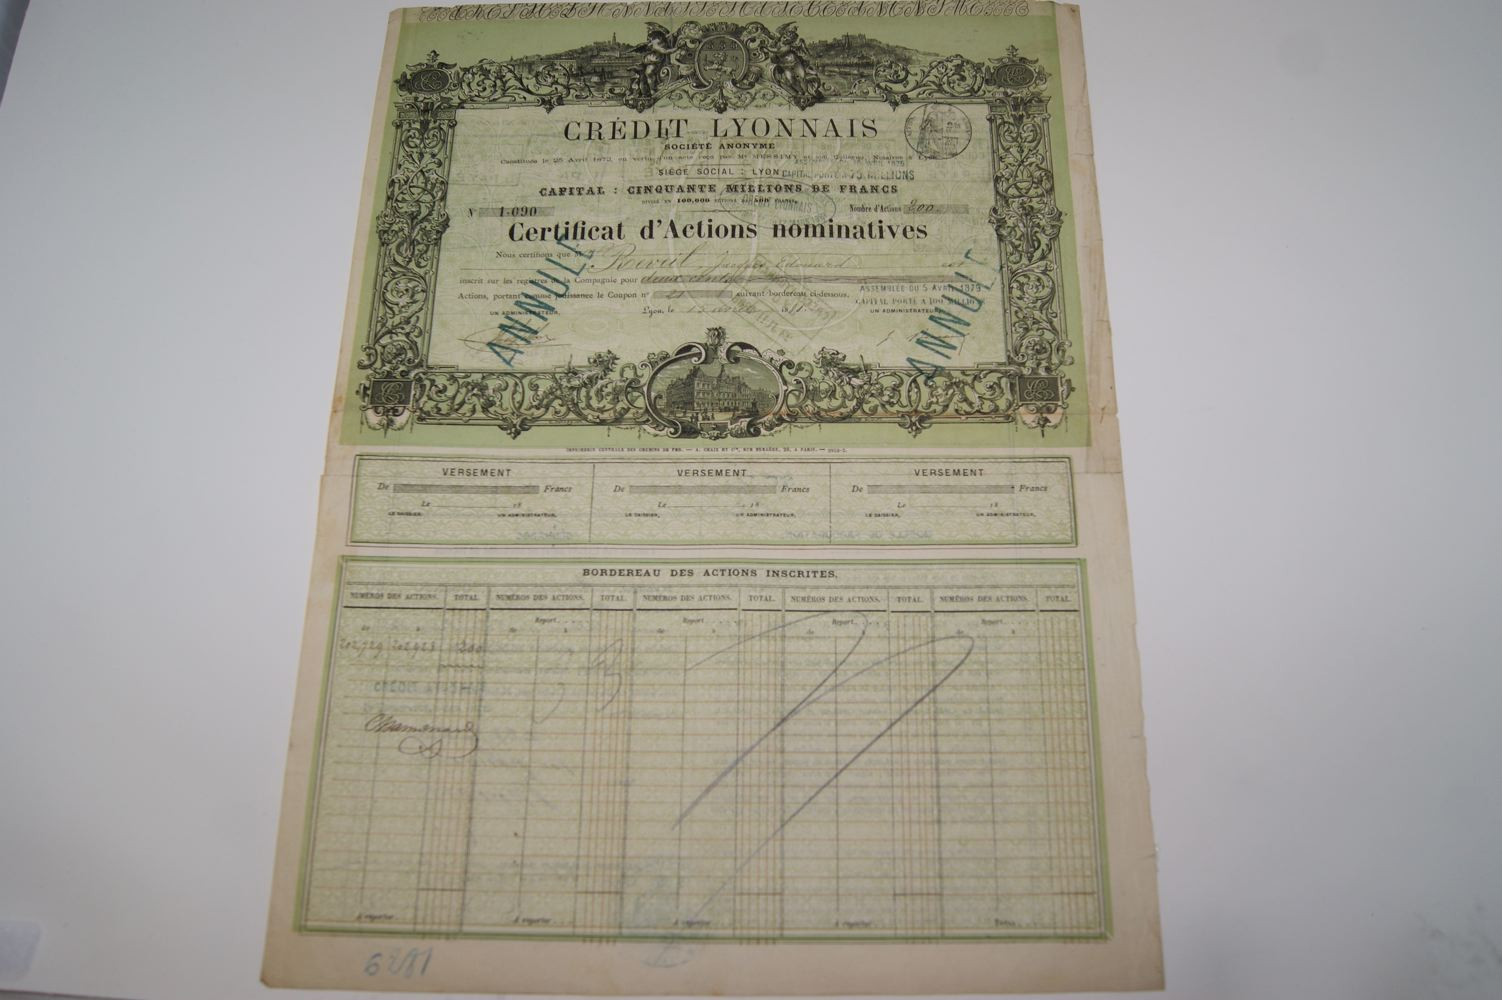 CRÉDIT LYONNAIS
SOCIÉTÉ ANONYME
Constituée le 25 Avril 1872, en vertu d'un acte reçu par Me MESSIMY et son Collègue, Notaires à Lyon
SIÈGE SOCIAL : LYON
CAPITAL PORTÉ A 75 MILLIONS
CAPITAL : CINQUANTE MILLIONS DE FRANCS
DIVISÉ EN 100,000 ACTIONS DE 500 FRANCS
N° 1.090
Nombre d'Actions 200
Certificat d'Actions nominatives
Nous certifions que M Reveil Jacques Edouard est
inscrit sur les registres de la Compagnie pour deux cents
Actions, portant comme jouissance le Coupon n° 21 suivant bordereau ci-dessous.
ASSEMBLÉE DU 5 AVRIL 1879
CAPITAL PORTÉ A 100 MILLIONS
Lyon, le
UN ADMINISTRATEUR,
UN ADMINISTRATEUR,
ANNULÉ
ANNULÉ
IMPRIMERIE CENTRALE DES CHEMINS DE FER. — A. CHAIX ET Cie, RUE BERGÈRE, 20, A PARIS. —
VERSEMENT
De Francs
Le 18
LE CAISSIER, UN ADMINISTRATEUR,
VERSEMENT
De Francs
Le 18
LE CAISSIER, UN ADMINISTRATEUR,
VERSEMENT
De Francs
Le 18
LE CAISSIER, UN ADMINISTRATEUR,
BORDEREAU DES ACTIONS INSCRITES.
NUMÉROS DES ACTIONS. TOTAL. NUMÉROS DES ACTIONS. TOTAL. NUMÉROS DES ACTIONS. TOTAL. NUMÉROS DES ACTIONS. TOTAL. NUMÉROS DES ACTIONS. TOTAL.
Report.... Report.... Report.... Report....
de à de à de à de à de à
200
A reporter. A reporter... A reporter... A reporter... Total...
6281